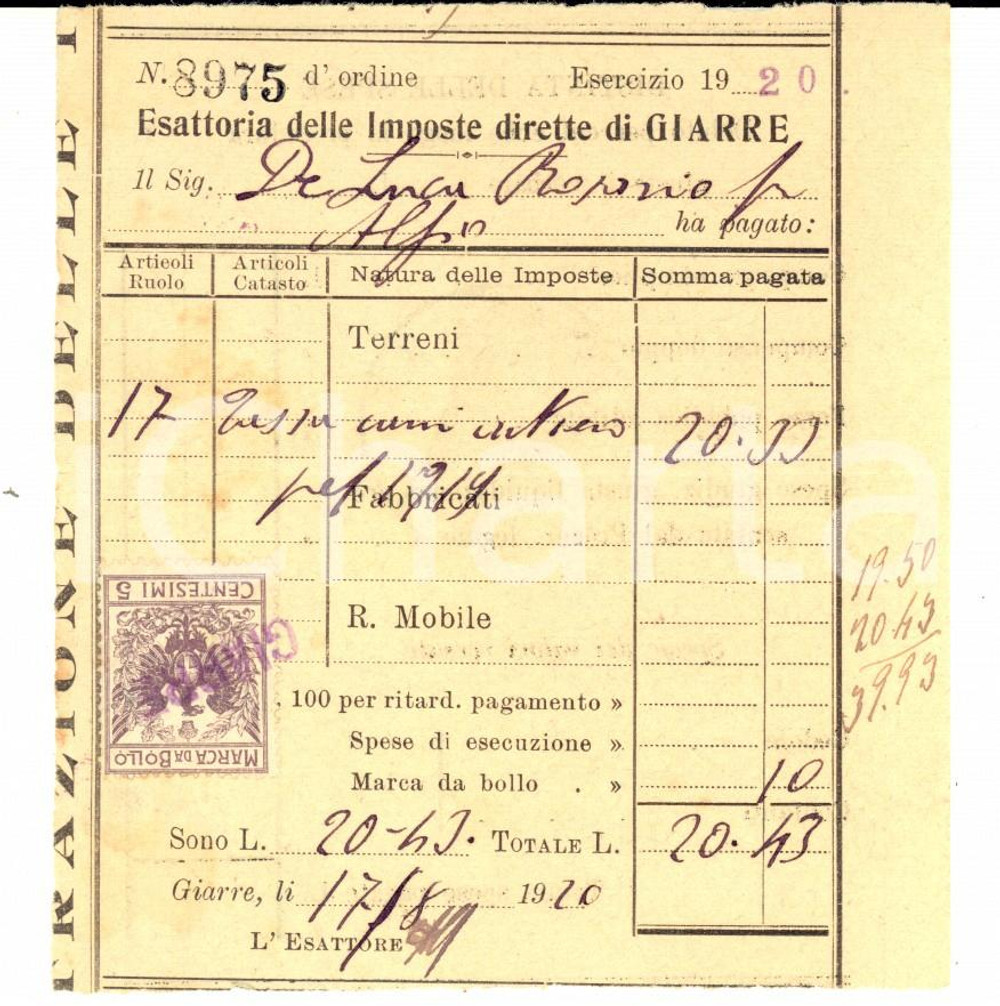 N. 8975 d' ordine Esercizio 19 20
Esattoria delle Imposte dirette di GIARRE
Il Sig. De Luca Rosario fu
Alfio ha pagato:
Articoli Ruolo Articoli Catasto Natura delle Imposte Somma pagata
Terreni
17 Tassa 20.33
pel 1919
Fabbricati
R. Mobile
CENTESIMI 5
MARCA DA BOLLO
100 per ritard. pagamento »
Spese di esecuzione »
Marca da bollo . » 10
Sono L. 20-43. TOTALE L. 20.43
Giarre, li 17/8 1920
L' ESATTORE
19.50
20.43
39.93
TRAZIONE DELLE I
Charta